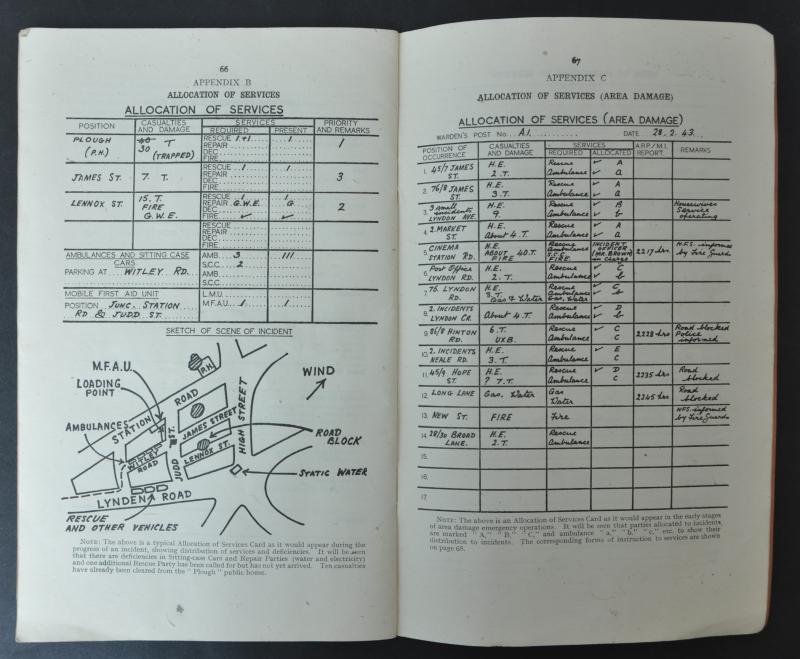 66
APPENDIX B
ALLOCATION OF SERVICES
ALLOCATION OF SERVICES
POSITION CASUALTIES AND DAMAGE SERVICES REQUIRED PRESENT PRIORITY AND REMARKS
PLOUGH (P.H.) 40 30 T (TRAPPED) RESCUE 1+1 1 1
REPAIR
DEC.
FIRE
JAMES ST. 7. T. RESCUE 1 1 3
REPAIR
DEC.
FIRE
LENNOX ST. 15. T. FIRE G.W.E. RESCUE 1 1 2
REPAIR G.W.E. G
DEC.
FIRE ✓ ✓
RESCUE
REPAIR
DEC.
FIRE
AMBULANCES AND SITTING CASE CARS. AMB. 3 III
PARKING AT WITLEY RD. S.C.C. 2
AMB.
S.C.C.
MOBILE FIRST AID UNIT L.M.U.
POSITION JUNC. STATION RD & JUDD ST. M.F.A.U. 1 1
SKETCH OF SCENE OF INCIDENT
M.F.A.U.
LOADING POINT
AMBULANCES
P.H.
ROAD
STATION
JAMES STREET
LENNOX ST.
JUDD ST.
HIGH STREET
WITLEY ROAD
WIND
ROAD BLOCK
STATIC WATER
LYNDEN ROAD
RESCUE AND OTHER VEHICLES
NOTE: The above is a typical Allocation of Services Card as it would appear during the
progress of an incident, showing distribution of services and deficiencies. It will be seen
that there are deficiencies in Sitting-case Cars and Repair Parties (water and electricity)
and one additional Rescue Party has been called for but has not yet arrived. Ten casualties
have already been cleared from the "Plough" public home.
67
APPENDIX C
ALLOCATION OF SERVICES (AREA DAMAGE)
ALLOCATION OF SERVICES (AREA DAMAGE)
WARDEN'S POST No. A1. DATE 28.2.43.
POSITION OF OCCURRENCE CASUALTIES AND DAMAGE SERVICES REQUIRED ALLOCATED A.R.P./M.I. REPORT. REMARKS
1. 45/7 JAMES ST. H.E. 2.T. Rescue ✓ A
Ambulance ✓ a
2. 76/8 JAMES ST. H.E. 3.T. Rescue ✓ A
Ambulance ✓ a
3. 3 small incidents LYNDON AVE. H.E. 9. Rescue ✓ B Housewives Service operating
Ambulance ✓ b
4. 2. MARKET ST. H.E. About 4 T. Rescue ✓ A
Ambulance ✓ a
5. CINEMA STATION RD. H.E. ABOUT 40 T. FIRE Rescue Ambulance S.C.C. FIRE INCIDENT OFFICER (MR. BROWN) in Charge 2217 hrs N.F.S. informed by Fire Guards
6. Post Office LYNDON RD. H.E. 2.T. Rescue ✓ C
Ambulance ✓ b
7. 76 LYNDON RD. H.E. 3.T. Gas & Water Rescue ✓ C
Ambulance ✓ b
Gas, Water
8. 2. INCIDENTS LYNDON CR. About 4.T. Rescue ✓ D
Ambulance ✓ b
9. 86/8 HINTON RD. 6.T. UXB. Rescue ✓ C 2228 hrs Road blocked Police informed
Ambulance C
10. 2. INCIDENTS NEALE RD. H.E. 3.T. Rescue ✓ E
Ambulance C
11. 45/9 HOPE ST. H.E. ? 7.T. Rescue ✓ D 2235 hrs Road blocked
Ambulance C
12. LONG LANE Gas. Water Gas Water 2245 hrs Road blocked
13. NEW ST. FIRE Fire N.F.S. informed by Fire Guards
14. 28/30 BROAD LANE. H.E. 2.T. Rescue
Ambulance
15.
16.
17.
NOTE: The above is an Allocation of Services Card as it would appear in the early stages
of area damage emergency operations. It will be seen that parties allocated to incidents
are marked "A," "B," "C," and ambulance "a," "b," "c," etc. to show their
distribution to incidents. The corresponding forms of instruction to services are shown
on page 68.